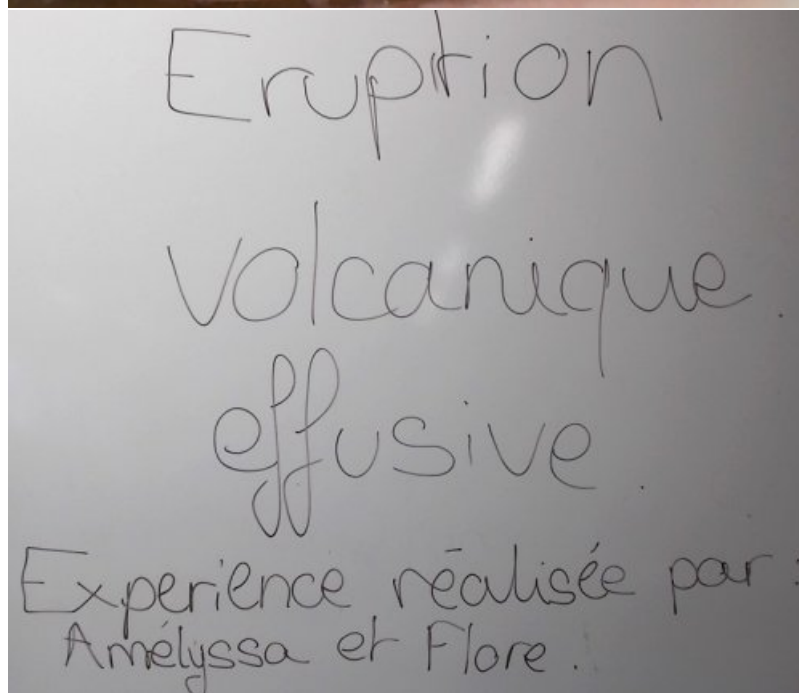 Eruption
volcanique.
effusive.
Experience réalisée par :
Amélyssa et Flore.